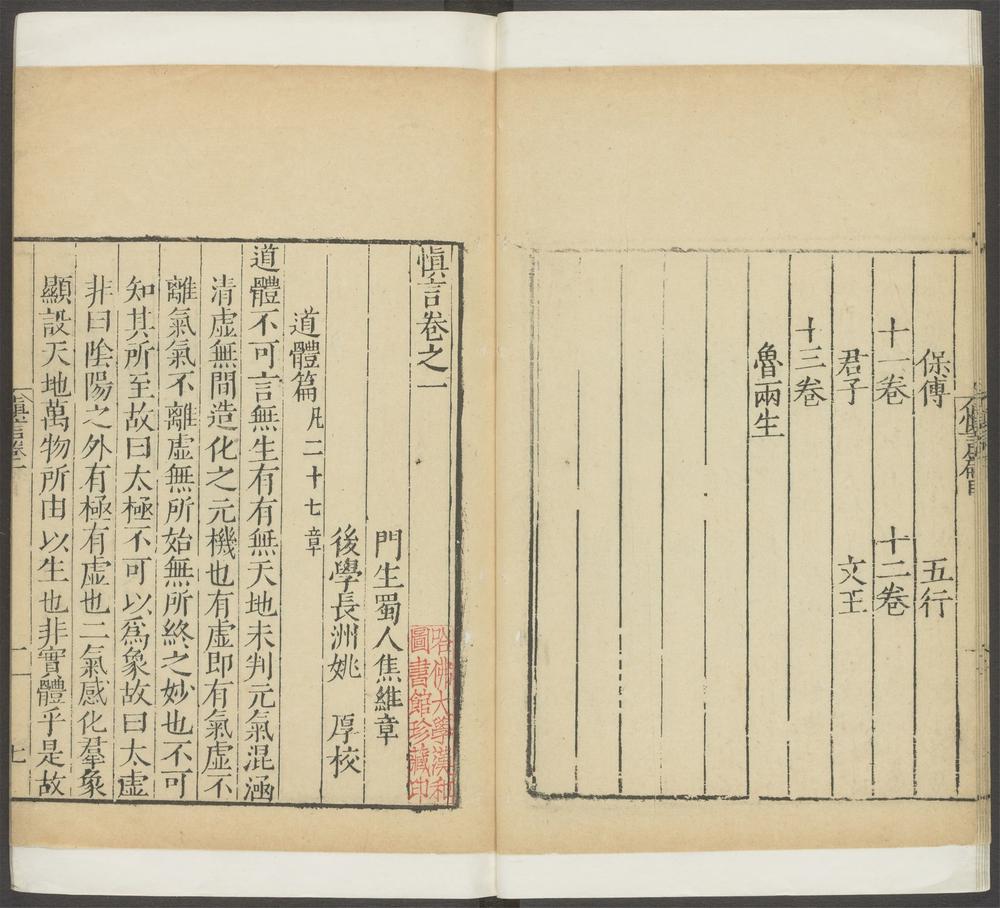 保傅　五行
十一卷　十二卷
君子　文王
十三卷
魯兩生
慎言卷之一
門生蜀人焦維章
後學長洲姚　厚校
道體篇凡二十七章
道體不可言無生有有無天地未判元氣混涵
清虛無間造化之元機也有虛即有氣虛不
離氣氣不離虛無所始無所終之妙也不可
知其所至故曰太極不可以爲象故曰太虛
非曰陰陽之外有極有虛也二氣感化羣象
顯設天地萬物所由以生也非實體乎是故
哈佛大學漢和
圖書館珍藏印
七